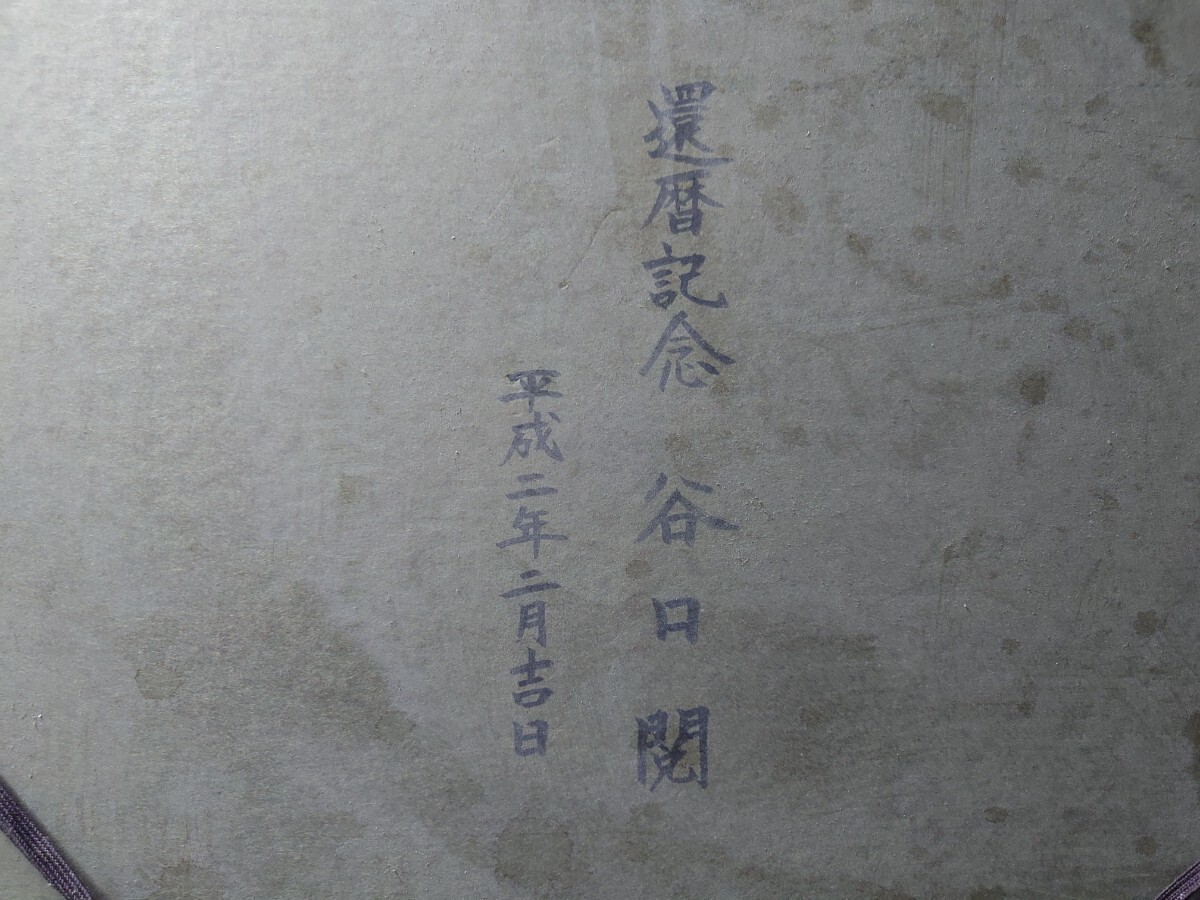 還暦記念 谷口閲
平成二年二月吉日